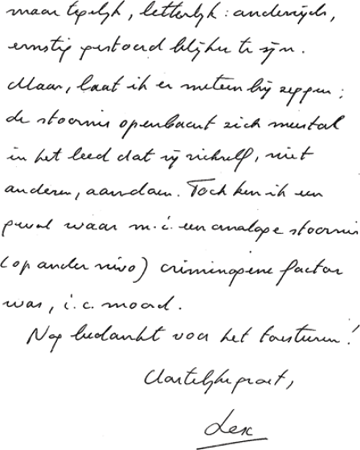 maar tegelijk, letterlijk: anderzijds,
ernstig gestoord blijken te zijn.
Maar, laat ik er meteen bij zeggen:
de stoornis openbaart zich meestal
in het leed dat zij zichzelf, niet
anderen, aandoen. Toch ken ik een
geval waar m.i. een analoge stoornis
(op ander nivo) criminogene factor
was, i.c. moord.
Nog bedankt voor het toesturen!
Hartelijke groet,
Lex